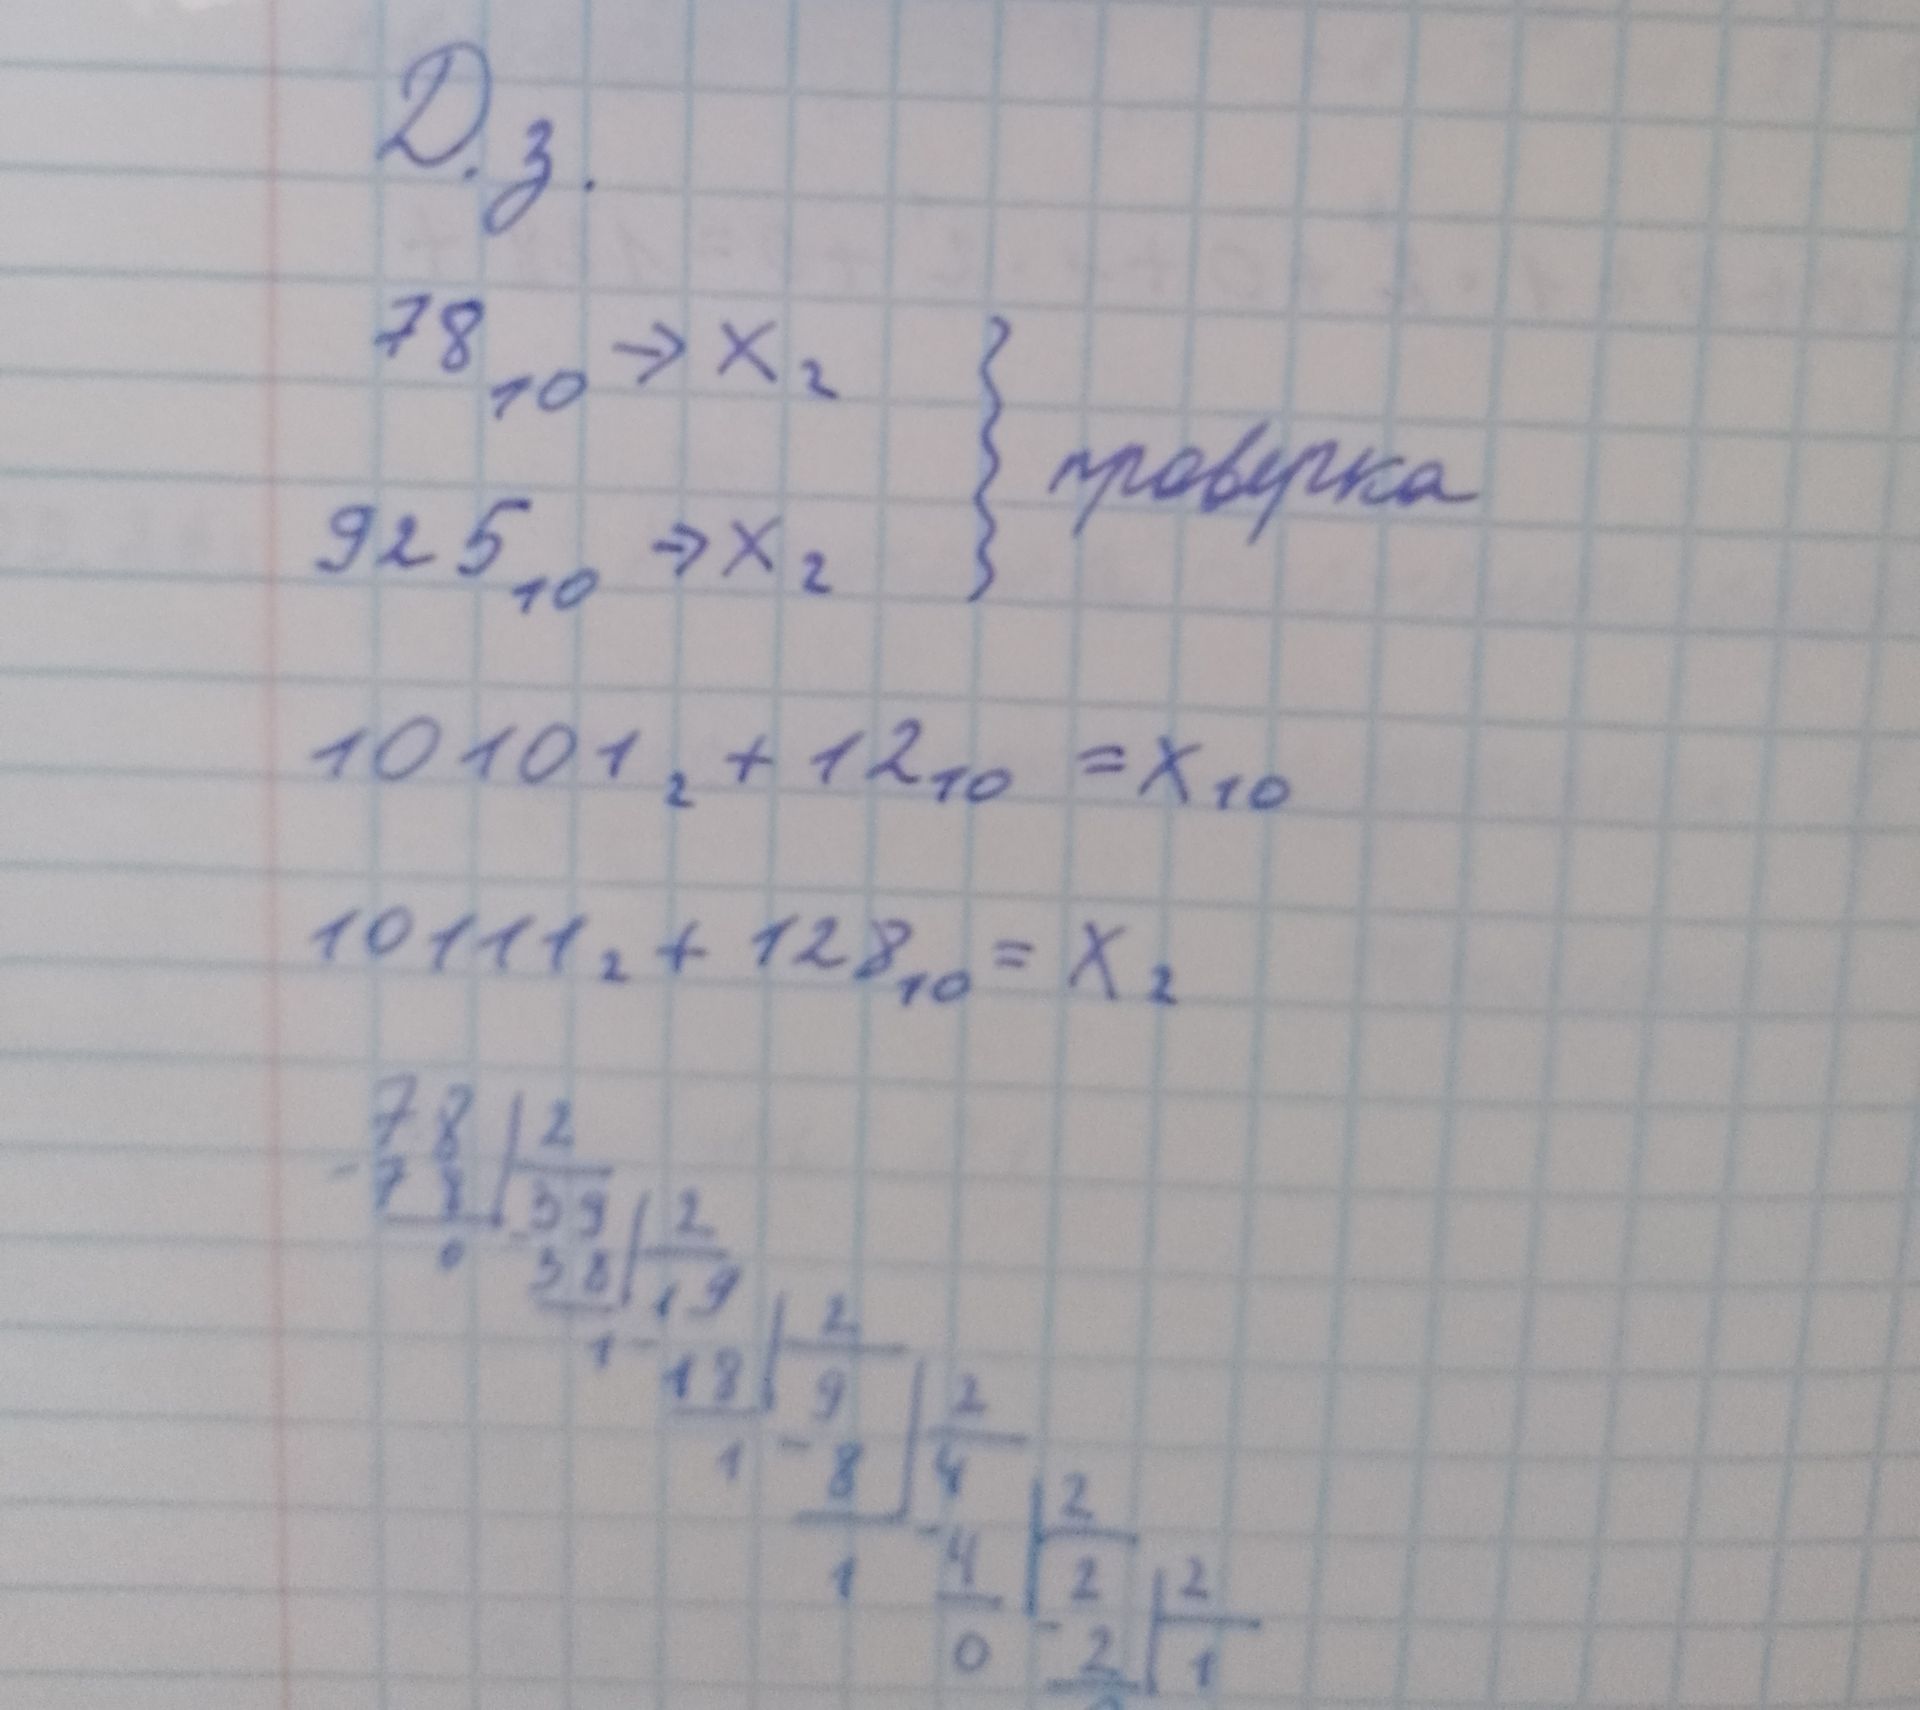 Д.з.
78₁₀ → X₂
925₁₀ → X₂ } проверка
10101₂ + 12₁₀ = X₁₀
10111₂ + 128₁₀ = X₂
78 | 2
- 78 39 | 2
0 - 38 19 | 2
1 - 18 9 | 2
1 - 8 4 | 2
1 - 4 2 | 2
0 - 2 1
0